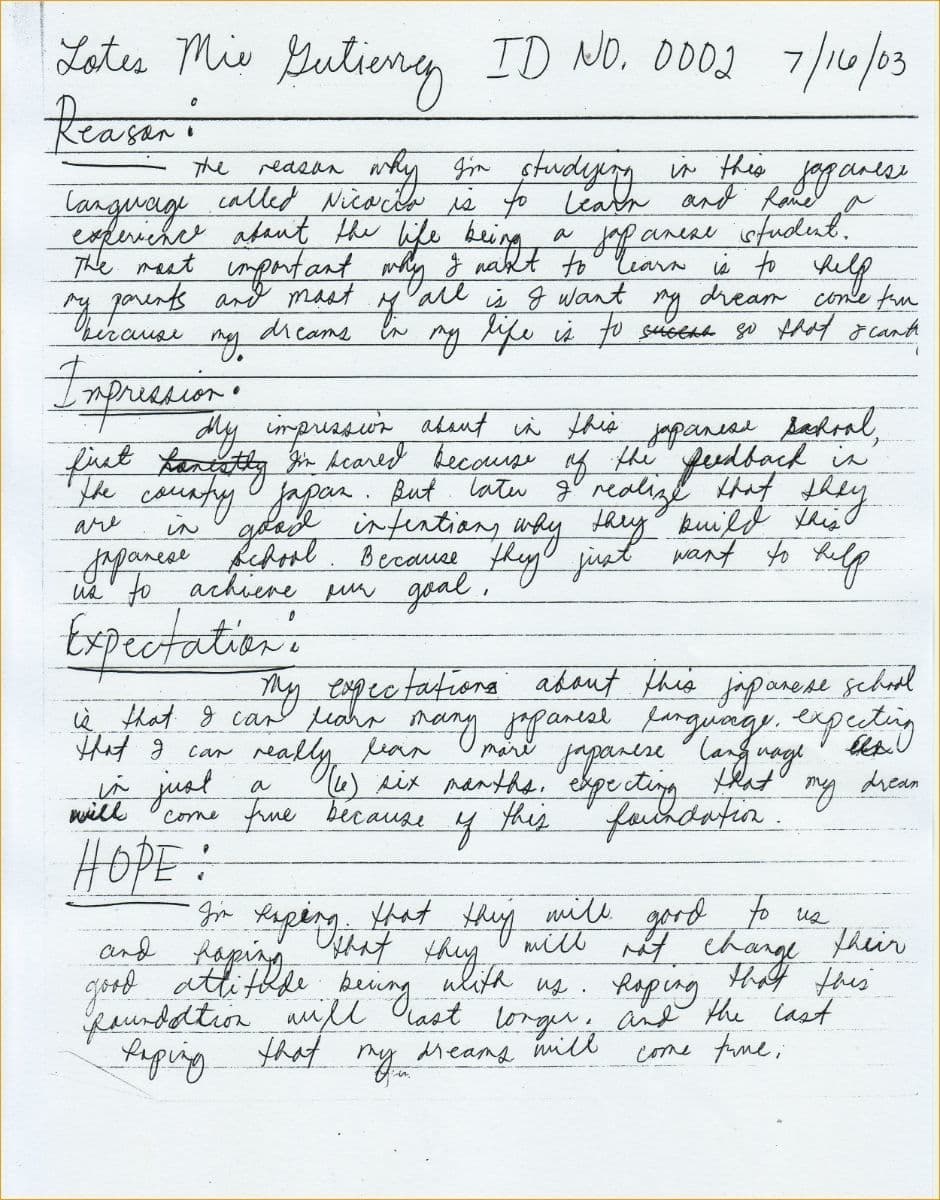 Lotes Mie Gutierrez ID NO. 0002 7/16/03
Reason:
The reason why I'm studying in this japanese
language called Nicocia is to learn and have a
experience about the life being a japanese student.
The most important why I want to learn is to help
my parents and most of all is I want my dream come true
because my dreams in my life is to so that I can
Impression:
My impression about in this japanese school,
first honestly I'm scared because of the feedback in
the country japan. But later I realize that they
are in good intentions why they build this
japanese school. Because they just want to help
us to achieve our goal.
Expectation:
My expectations about this japanese school
is that I can learn many japanese language. expecting
that I can really learn more japanese language
in just a (6) six months. expecting that my dream
will come true because of this foundation.
HOPE:
I'm hoping that they will good to us
and hoping that they will not change their
good attitude being with us. hoping that this
foundation will last longer. and the last
hoping that my dreams will come true.